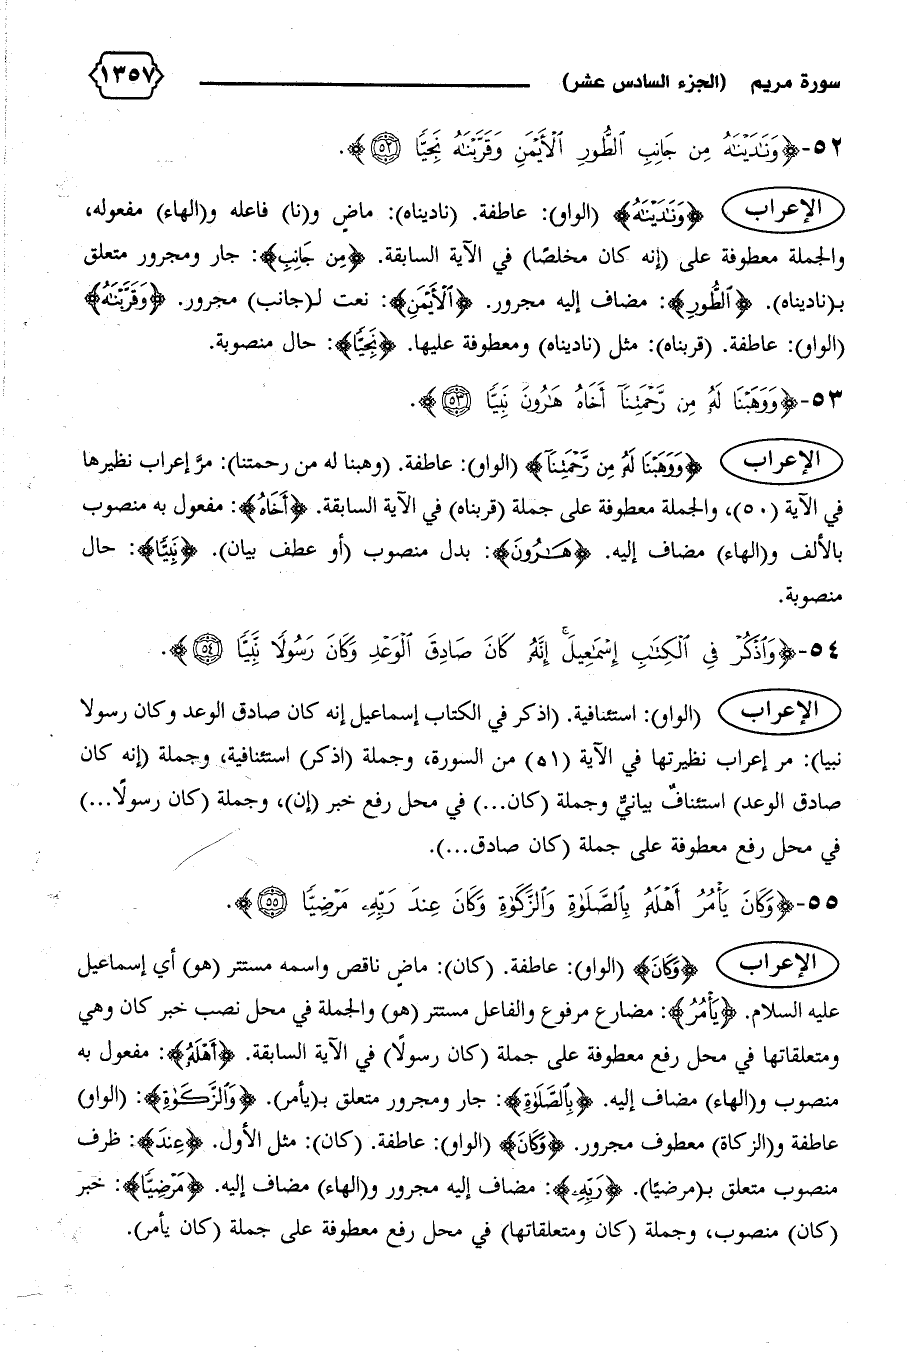 سورة مريم (الجزء السادس عشر) ١٣٥٧
٥٢-﴿وَنَٰدَيْنَٰهُ مِن جَانِبِ ٱلطُّورِ ٱلْأَيْمَنِ وَقَرَّبْنَٰهُ نَجِيًّا ٥٢﴾.
الإعراب ﴿وَنَٰدَيْنَٰهُ﴾ (الواو): عاطفة. (ناديناه): ماضٍ و(نا) فاعله و(الهاء) مفعوله،
والجملة معطوفة على (إنه كان مخلصًا) في الآية السابقة. ﴿مِن جَانِبِ﴾: جار ومجرور متعلق
بـ(ناديناه). ﴿ٱلطُّورِ﴾: مضاف إليه مجرور. ﴿ٱلْأَيْمَنِ﴾: نعت لـ(جانب) مجرور. ﴿وَقَرَّبْنَٰهُ﴾
(الواو): عاطفة. (قربناه): مثل (ناديناه) ومعطوفة عليها. ﴿نَجِيًّا﴾: حال منصوبة.
٥٣-﴿وَوَهَبْنَا لَهُۥ مِن رَّحْمَتِنَآ أَخَاهُ هَٰرُونَ نَبِيًّا ٥٣﴾.
الإعراب ﴿وَوَهَبْنَا لَهُۥ مِن رَّحْمَتِنَآ﴾ (الواو): عاطفة. (وهبنا له من رحمتنا): مرَّ إعراب نظيرها
في الآية (٥٠)، والجملة معطوفة على جملة (قربناه) في الآية السابقة. ﴿أَخَاهُ﴾: مفعول به منصوب
بالألف و(الهاء) مضاف إليه. ﴿هَٰرُونَ﴾: بدل منصوب (أو عطف بيان). ﴿نَبِيًّا﴾: حال
منصوبة.
٥٤-﴿وَٱذْكُرْ فِى ٱلْكِتَٰبِ إِسْمَٰعِيلَ ۚ إِنَّهُۥ كَانَ صَادِقَ ٱلْوَعْدِ وَكَانَ رَسُولًا نَّبِيًّا ٥٤﴾.
الإعراب (الواو): استئنافية. (اذكر في الكتاب إسماعيل إنه كان صادق الوعد وكان رسولا
نبيا): مر إعراب نظيرتها في الآية (٥١) من السورة، وجملة (اذكر) استئنافية، وجملة (إنه كان
صادق الوعد) استئنافٌ بيانيٌّ وجملة (كان...) في محل رفع خبر (إن)، وجملة (كان رسولًا...)
في محل رفع معطوفة على جملة (كان صادق...).
٥٥-﴿وَكَانَ يَأْمُرُ أَهْلَهُۥ بِٱلصَّلَوٰةِ وَٱلزَّكَوٰةِ وَكَانَ عِندَ رَبِّهِۦ مَرْضِيًّا ٥٥﴾.
الإعراب ﴿وَكَانَ﴾ (الواو): عاطفة. (كان): ماضٍ ناقص واسمه مستتر (هو) أي إسماعيل
عليه السلام. ﴿يَأْمُرُ﴾: مضارع مرفوع والفاعل مستتر (هو) والجملة في محل نصب خبر كان وهي
ومتعلقاتها في محل رفع معطوفة على جملة (كان رسولًا) في الآية السابقة. ﴿أَهْلَهُۥ﴾: مفعول به
منصوب و(الهاء) مضاف إليه. ﴿بِٱلصَّلَوٰةِ﴾: جار ومجرور متعلق بـ(يأمر). ﴿وَٱلزَّكَوٰةِ﴾: (الواو)
عاطفة و(الزكاة) معطوف مجرور. ﴿وَكَانَ﴾ (الواو): عاطفة. (كان): مثل الأول. ﴿عِندَ﴾: ظرف
منصوب متعلق بـ(مرضيًا). ﴿رَبِّهِۦ﴾: مضاف إليه مجرور و(الهاء) مضاف إليه. ﴿مَرْضِيًّا﴾: خبر
(كان) منصوب، وجملة (كان ومتعلقاتها) في محل رفع معطوفة على جملة (كان يأمر).